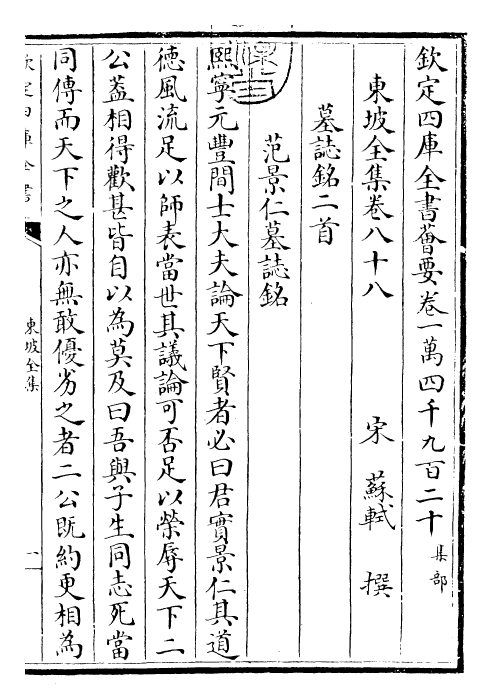 欽定四庫全書薈要卷一萬四千九百二十 集部
東坡全集卷八十八
宋 蘇軾 撰
墓誌銘二首
范景仁墓誌銘
熙寧元豐間士大夫論天下賢者必曰君實景仁其道
德風流足以師表當世其議論可否足以榮辱天下二
公葢相得歡甚皆自以為莫及曰吾與子生同志死當
同傳而天下之人亦無敢優劣之者二公既約更相為
欽定四庫全書
東坡全集
一